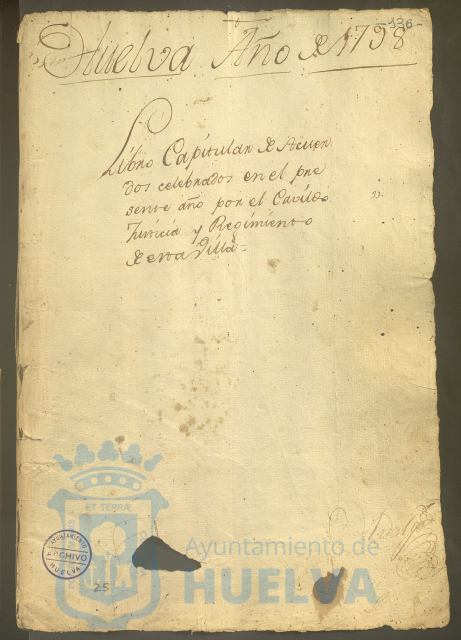 -136-
Huelva Año de 1798
Libro Capitular de Acuer
dos celebrados en el pre
sente año por el Cavildo
Justicia y Regimiento
de esta Villa
ET TERRÆ
AYUNTAMIENTO
ARCHIVO
HUELVA
25
Ayuntamiento de
HUELVA